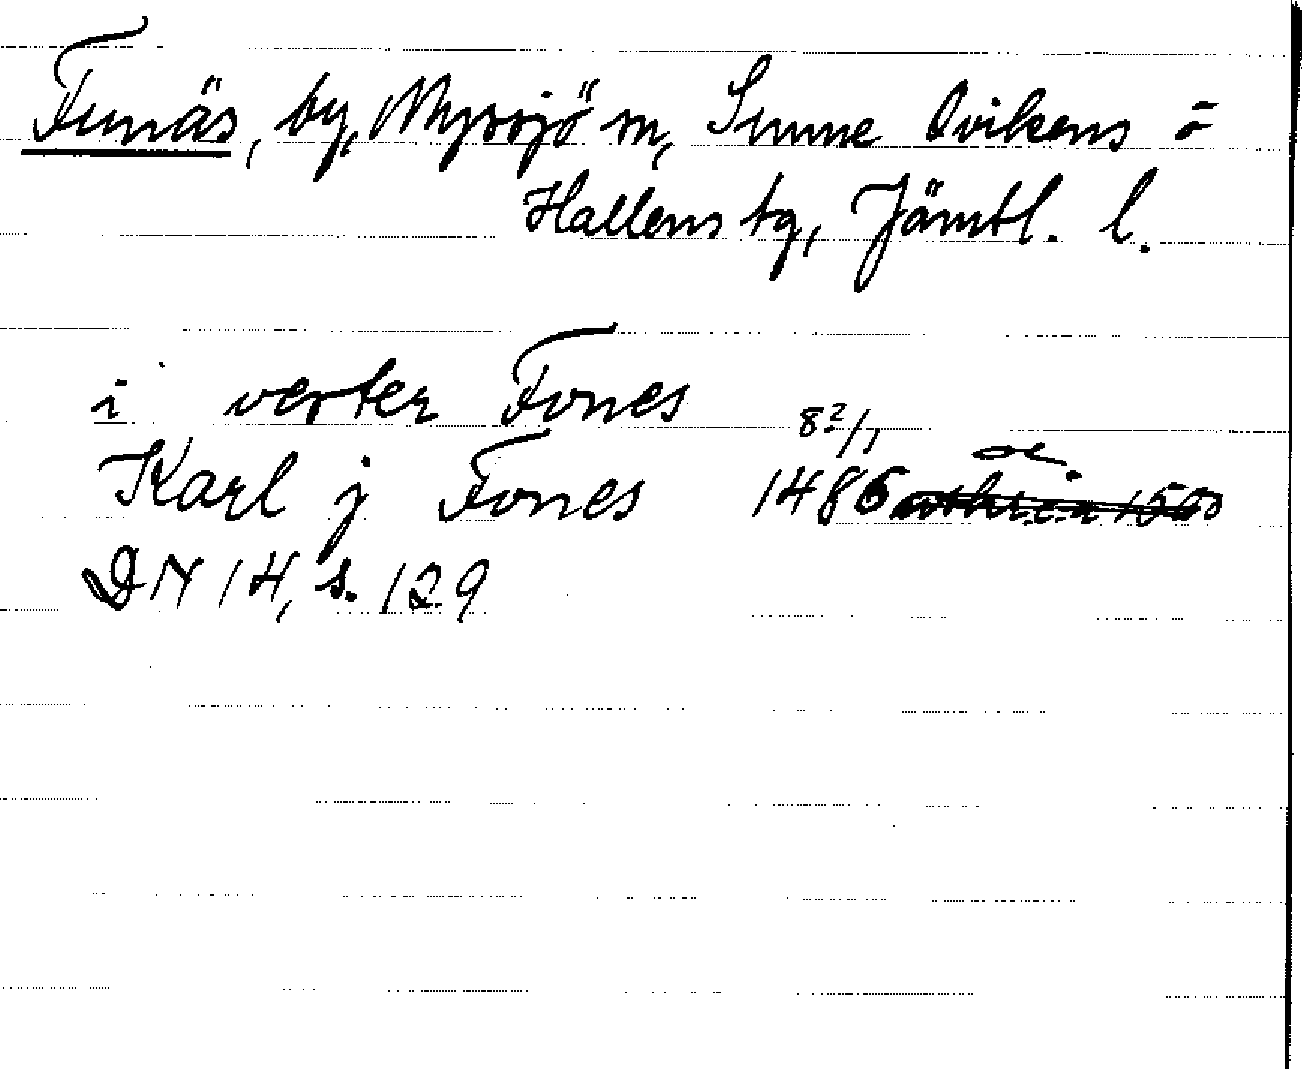 Funäs, by, Myssjö sn, Sunne Ovikens o
Hallens tg, Jämtl. l.
i verter Fones
Karl j Fones 8 2/1 1486 or.
DN 14, s. 129